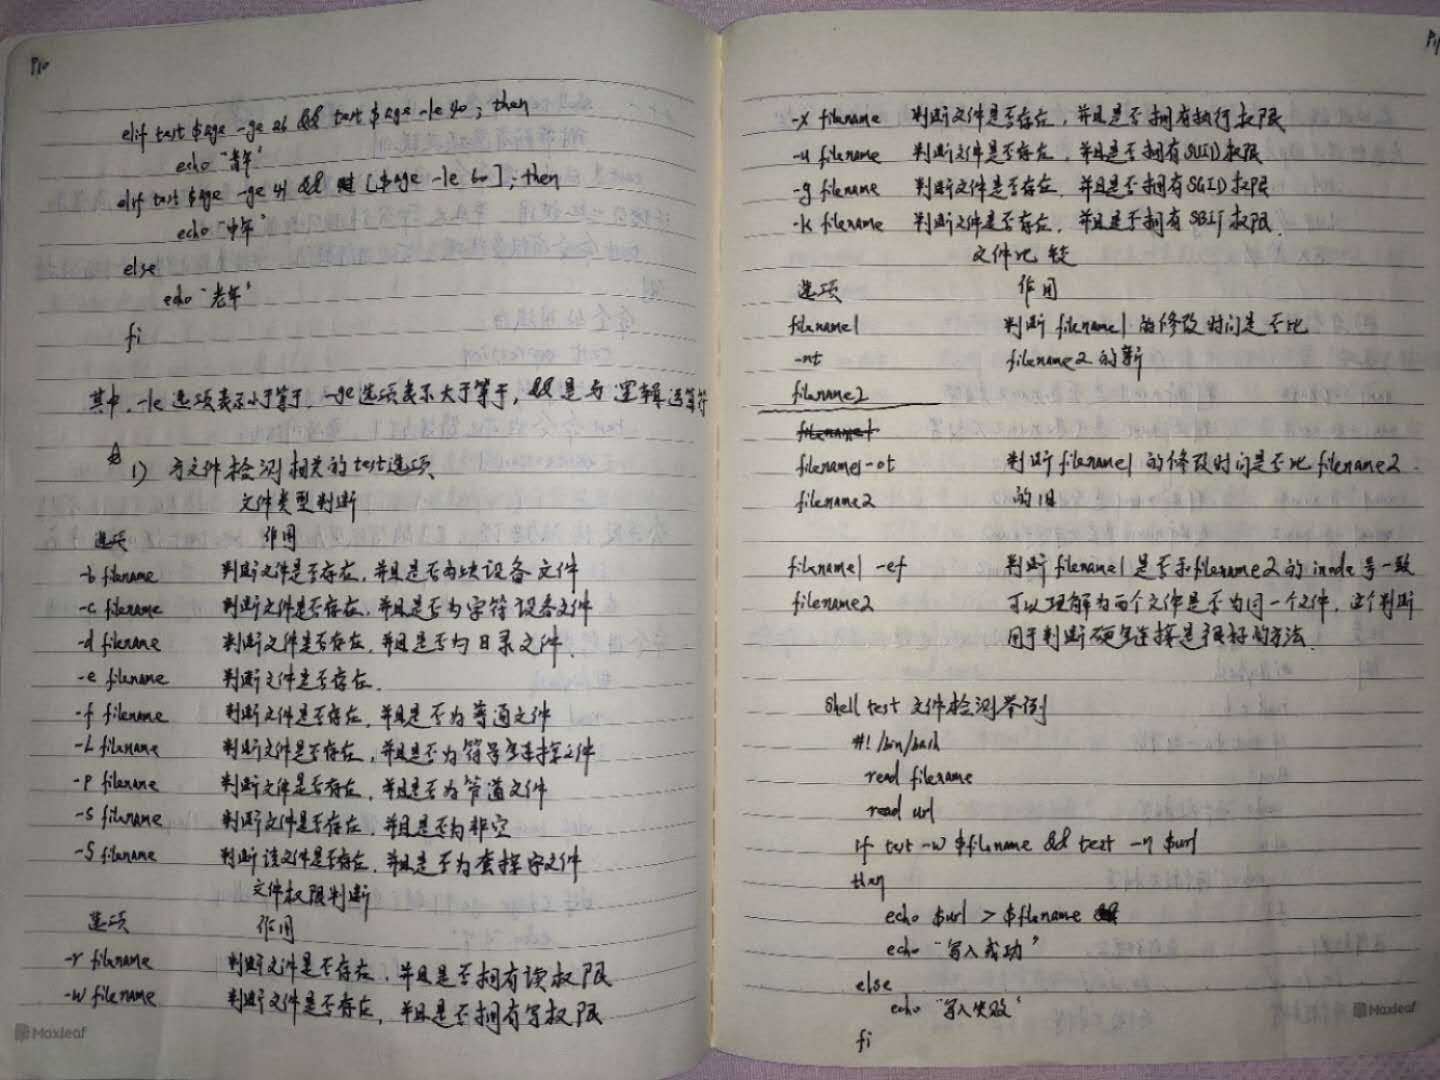 P10
elif test $age -ge 26 && test $age -le 40 ; then
echo "青年"
elif test $age -ge 41 && [$age -le 60] ; then
echo "中年"
else
echo "老年"
fi
其中, -le 选项表示小于等于, -ge选项表示大于等于, &&是与逻辑运算符
1) 与文件检测相关的test选项
文件类型判断
选项 作用
-b filename 判断文件是否存在, 并且是否为块设备文件
-c filename 判断文件是否存在, 并且是否为字符设备文件
-d filename 判断文件是否存在, 并且是否为目录文件.
-e filename 判断文件是否存在.
-f filename 判断文件是否存在, 并且是否为普通文件
-L filename 判断文件是否存在, 并且是否为符号连接文件
-p filename 判断文件是否存在, 并且是否为管道文件
-s filename 判断文件是否存在, 并且是否为非空
-S filename 判断该文件是否存在, 并且是否为套接字文件
文件权限判断
选项 作用
-r filename 判断文件是否存在, 并且是否拥有读权限
-w filename 判断文件是否存在, 并且是否拥有写权限
Maxleaf
P11
-x filename 判断文件是否存在, 并且是否拥有执行权限
-u filename 判断文件是否存在, 并且是否拥有SUID权限
-g filename 判断文件是否存在, 并且是否拥有SGID权限
-k filename 判断文件是否存在, 并且是否拥有SBIT权限.
文件比较
选项 作用
filename1 判断filename1的修改时间是否比
-nt filename2的新
filename2
filename1
filename1-ot 判断filename1的修改时间是否比filename2.
filename2 的旧
filename1 -ef 判断filename1是否和filename2的inode号一致
filename2 可以理解为两个文件是否为同一个文件, 这个判断
用于判断硬连接是很好的方法.
Shell test 文件检测举例
#! /bin/bash
read filename
read url
if test -w $filename && test -n $url
then
echo $url > $filename
echo "写入成功"
else
echo "写入失败"
fi
Maxleaf